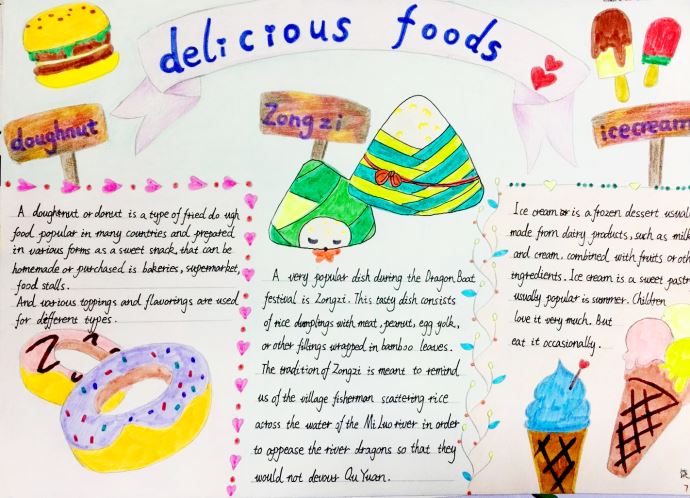 delicious foods
doughnut
A doughtnut or donut is a type of fried do ugh
food popular in many countries and prepared
in various forms as a sweet snack, that can be
homemade or purchased is bakeries, supermarket,
food stalls.
And various toppings and flavorings are used
for different types.
Zongzi
A very popular dish during the Dragon Boat
festival is Zongzi. This tasty dish consists
of rice dumplings with meat, peanut, egg yolk,
or other fillings wrapped in bamboo leaves.
The tradition of Zongzi is meant to remind
us of the village fisherman scattering rice
across the water of the Mi Luo river in order
to appease the river dragons so that they
would not devour Qu Yuan.
icecream
Ice cream is a frozen dessert usual
made from dairy products, such as milk
and cream. combined with fruits or oth
ingredients. Ice cream is a sweet pastr
usually popular is summer. Children
love it very much. But
eat it occasionally.